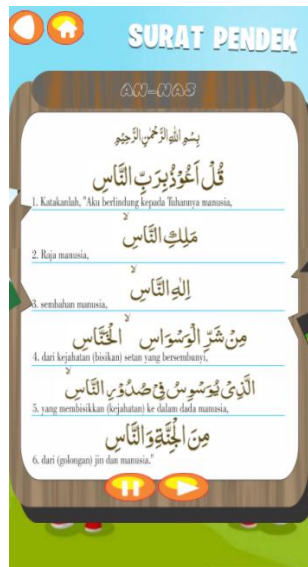 SURAT PENDEK
AN-NAS
بِسْمِ اللّٰهِ الرَّحْمٰنِ الرَّحِيْمِ
قُلْ اَعُوْذُ بِرَبِّ النَّاسِ
1. Katakanlah, "Aku berlindung kepada Tuhannya manusia,
مَلِكِ النَّاسِۙ
2. Raja manusia,
اِلٰهِ النَّاسِۙ
3. sembahan manusia,
مِنْ شَرِّ الْوَسْوَاسِ ۙ الْخَنَّاسِ
4. dari kejahatan (bisikan) setan yang bersembunyi,
الَّذِيْ يُوَسْوِسُ فِيْ صُدُوْرِ النَّاسِۙ
5. yang membisikkan (kejahatan) ke dalam dada manusia,
مِنَ الْجِنَّةِ وَالنَّاسِ
6. dari (golongan) jin dan manusia."